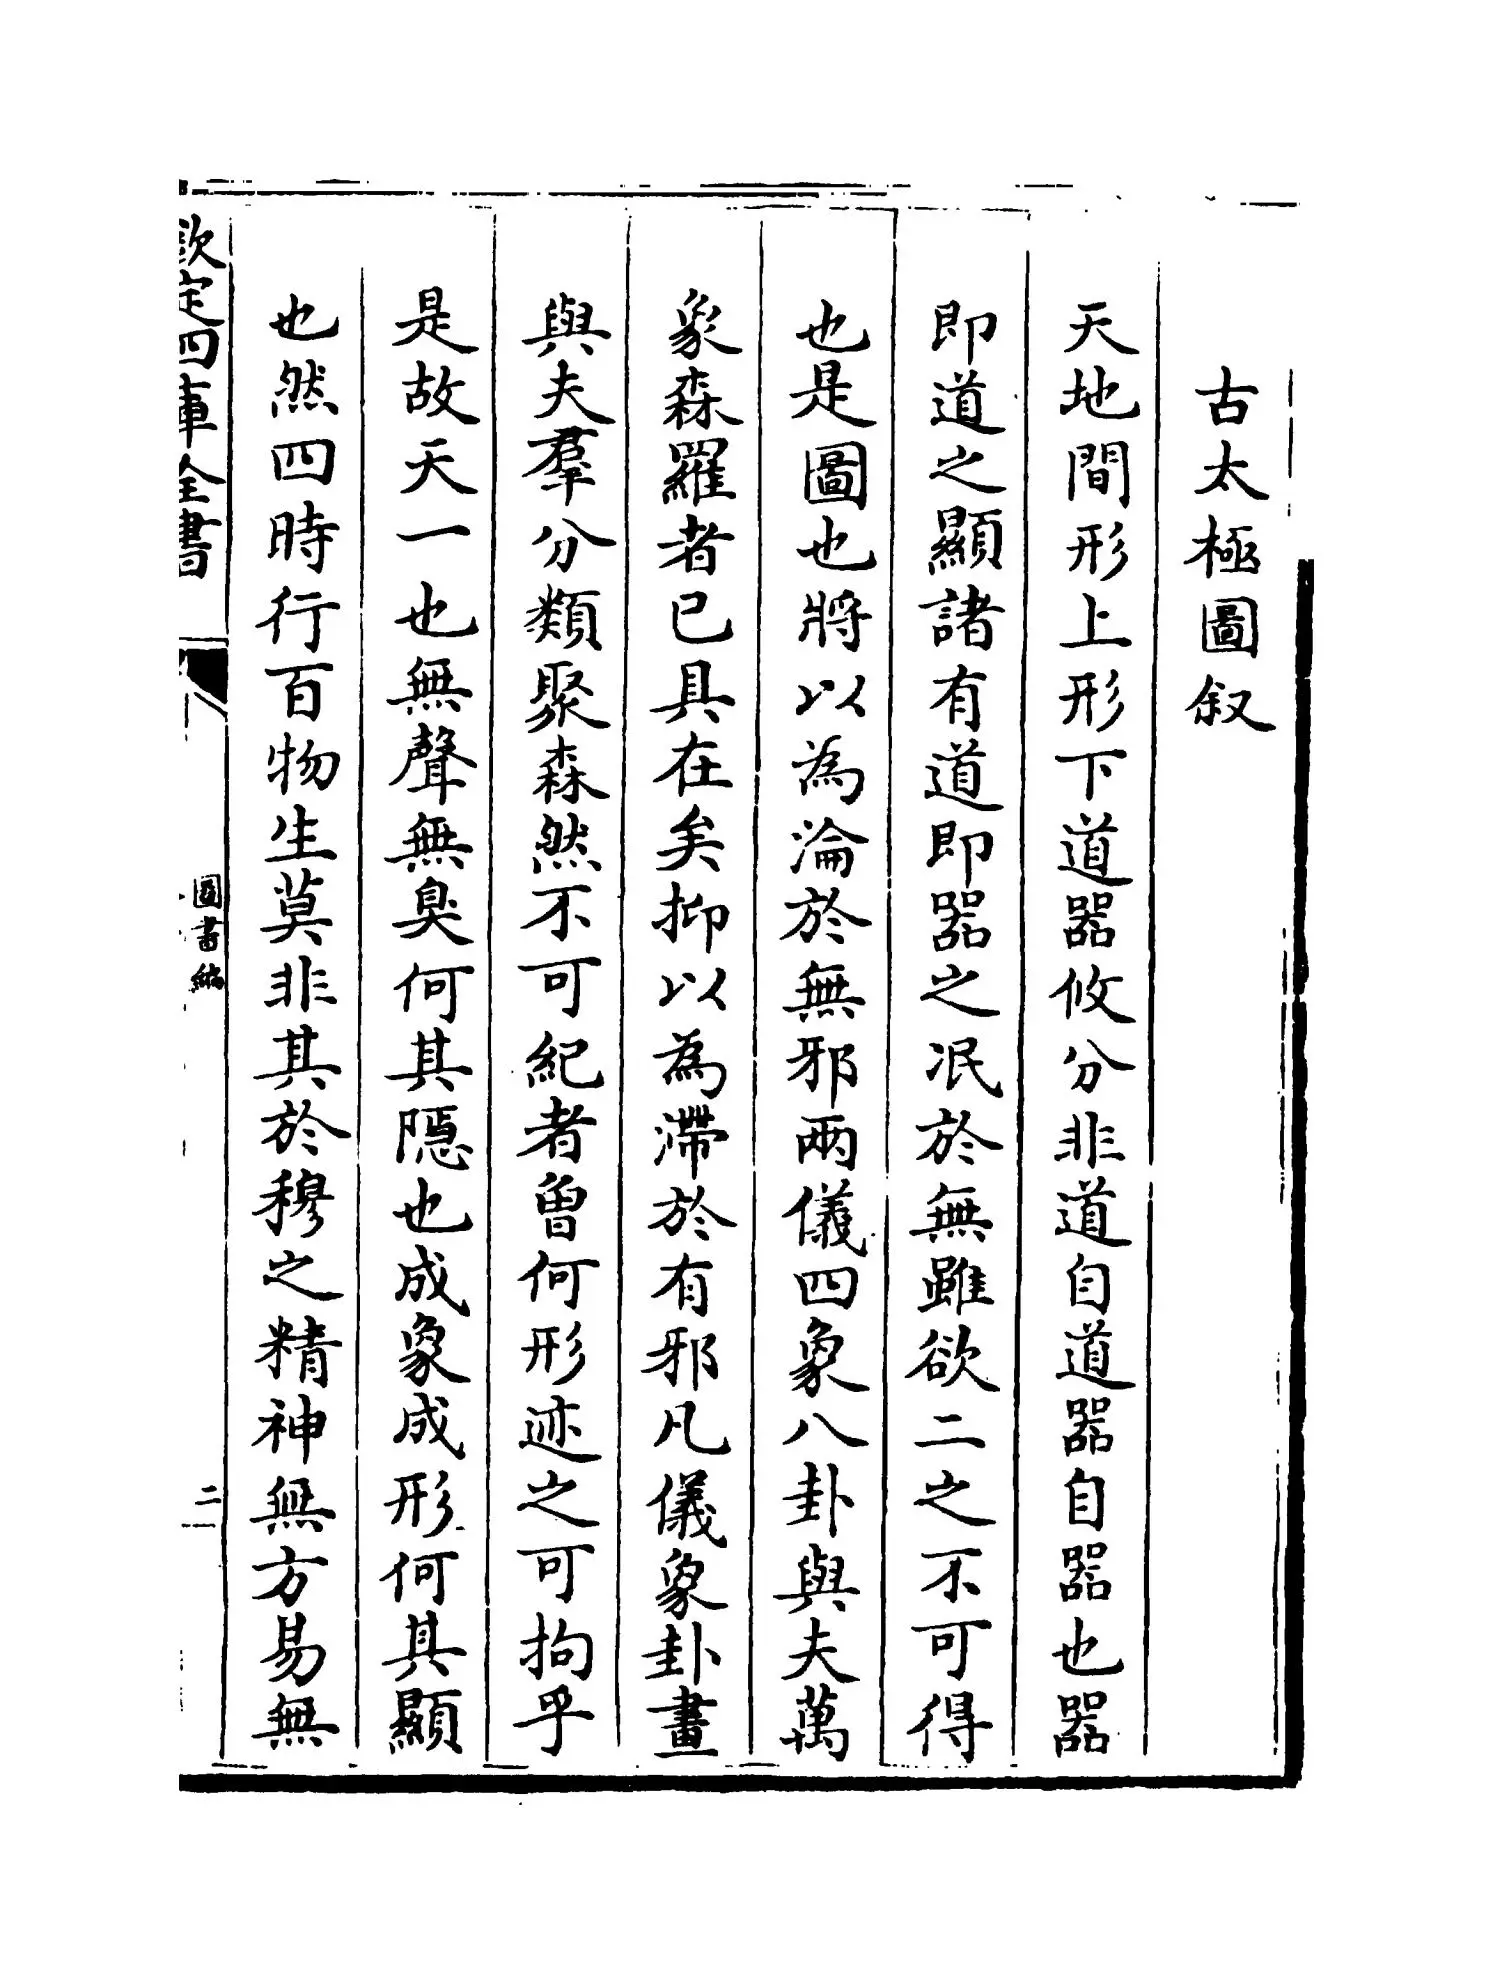 古太極圖叙
天地間形上形下道器攸分非道自道器自器也器
即道之顯諸有道即器之冺於無雖欲二之不可得
也是圖也將以為淪於無邪兩儀四象八卦與夫萬
象森羅者已具在矣抑以為滯於有邪凡儀象卦畫
與夫羣分類聚森然不可紀者曽何形迹之可拘乎
是故天一也無聲無臭何其隱也成象成形何其顯
也然四時行百物生莫非其於穆之精神無方易無
欽定四庫全書
圖書編
二